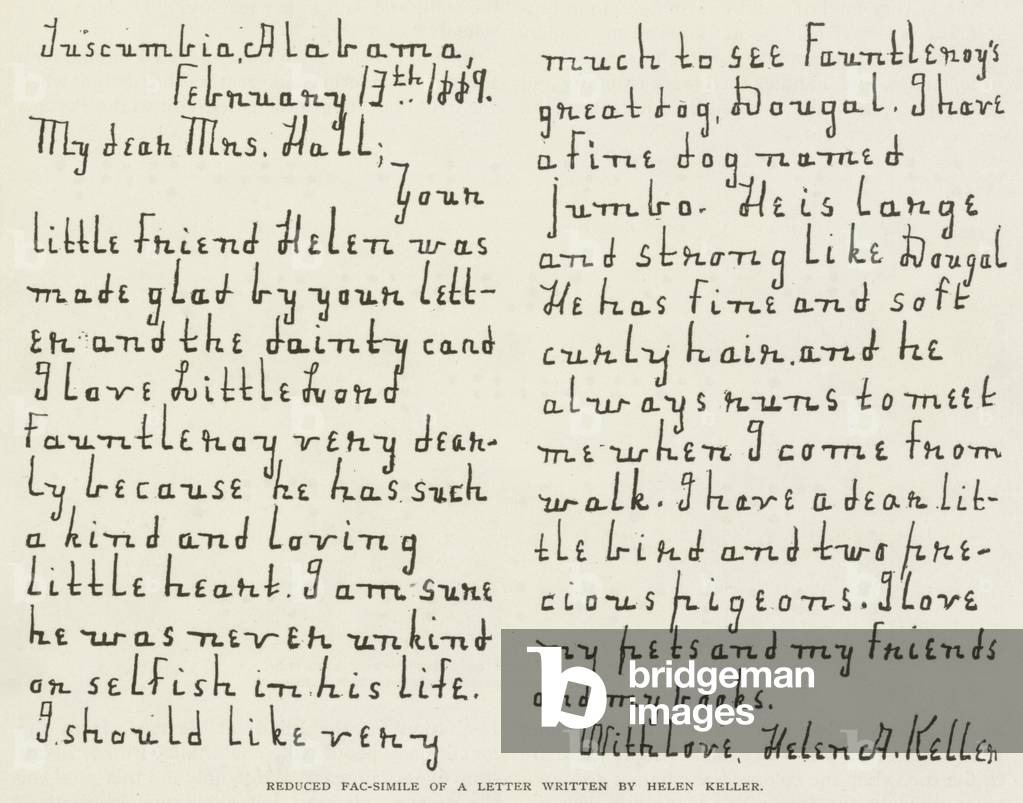 Tuscumbia, Alabama,
February 13th 1889.
My dear Mrs. Hall;
Your
little friend Helen was
made glad by your lett-
er and the dainty card
I love Little Lord
Fauntleroy very dear-
ly because he has such
a kind and loving
little heart. I am sure
he was never unkind
or selfish in his life.
I should like very
much to see Fauntleroy's
great dog, Dougal. I have
a fine dog named
Jumbo. He is large
and strong like Dougal
He has fine and soft
curly hair, and he
always runs to meet
me when I come from
walk. I have a dear lit-
tle bird and two pre-
cious pigeons. I love
my pets and my friends
and my books.
With love, Helen A. Keller
REDUCED FAC-SIMILE OF A LETTER WRITTEN BY HELEN KELLER.
b bridgeman
images